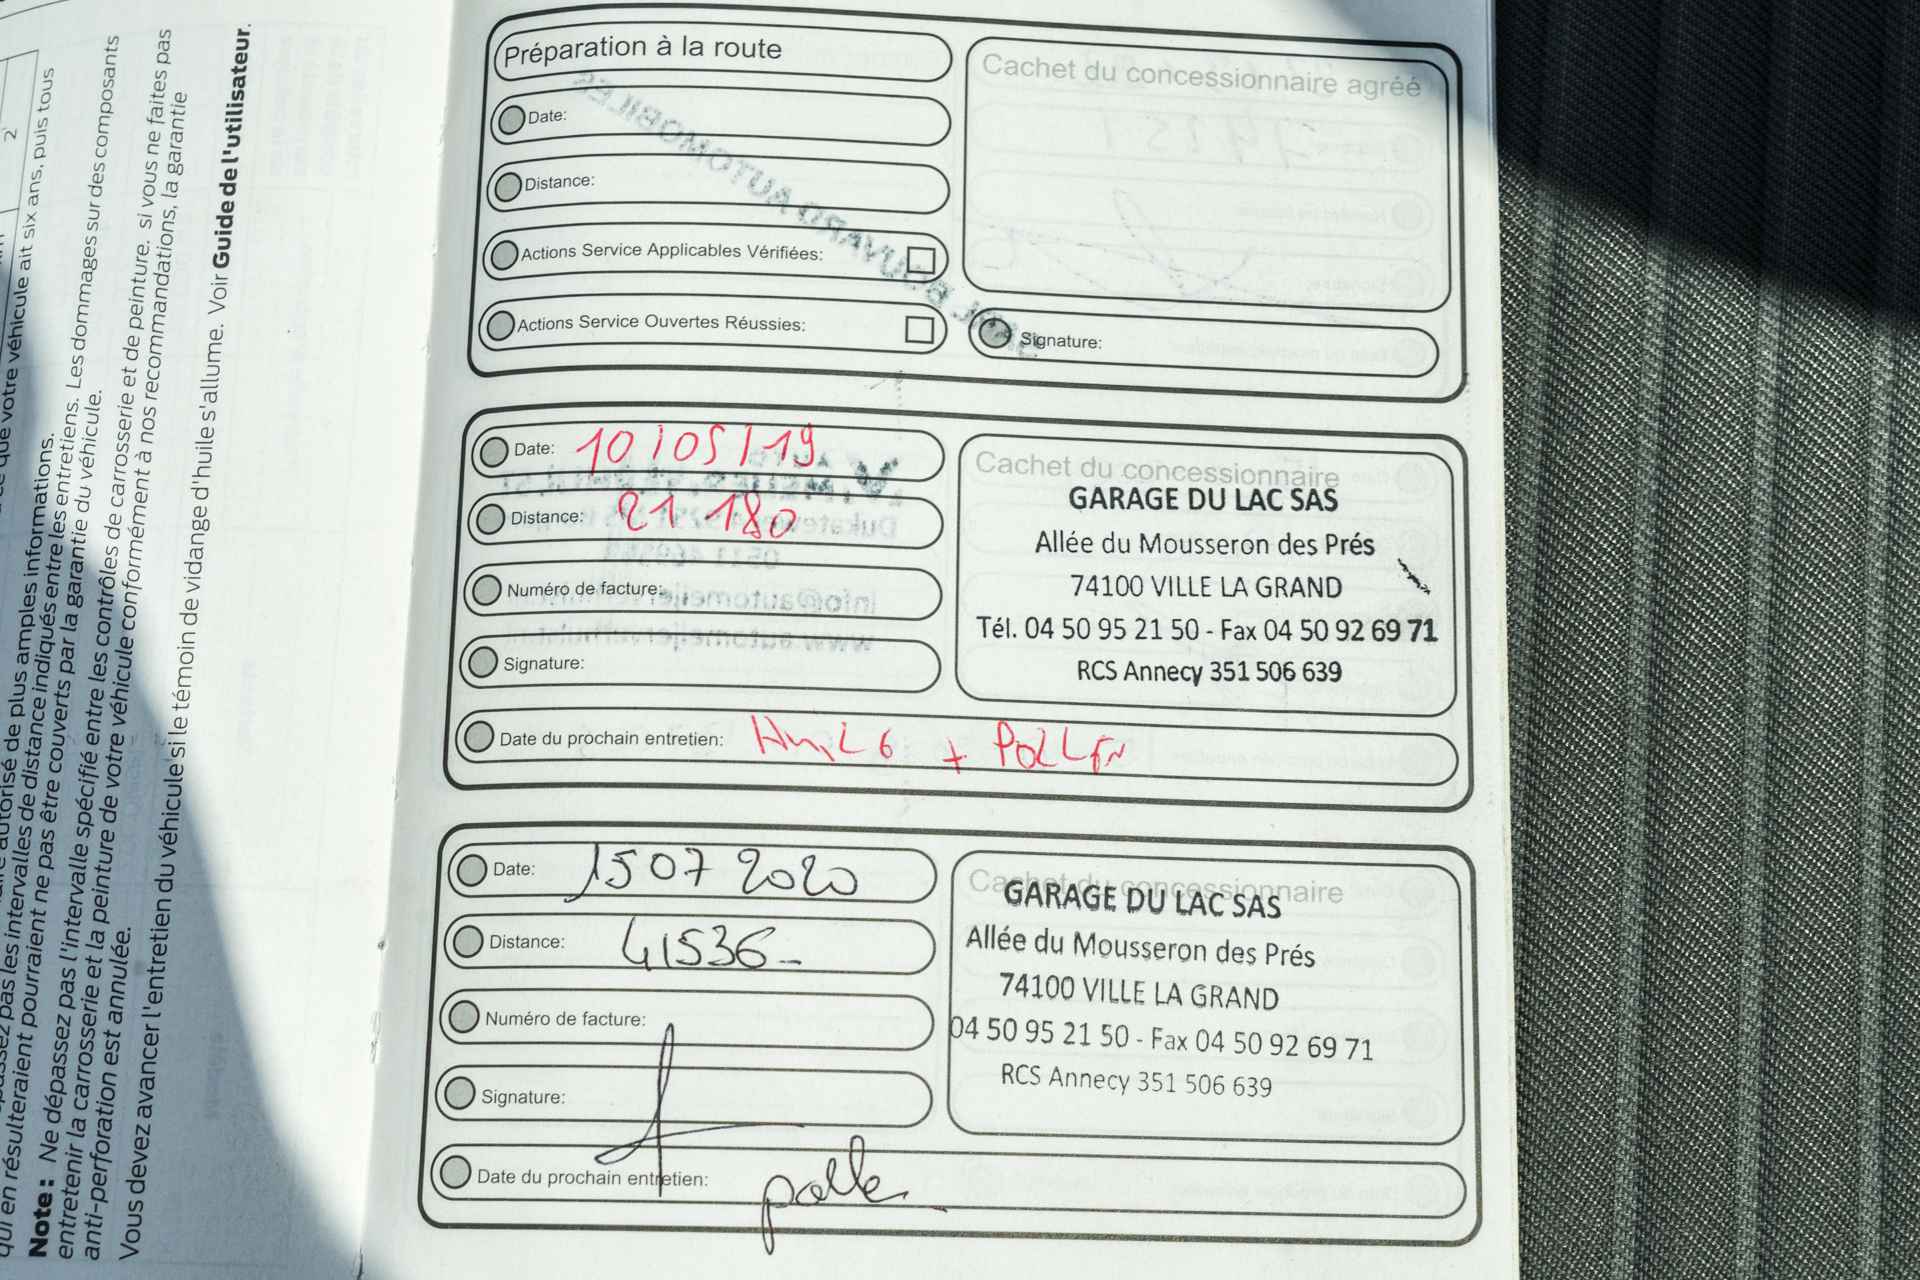 2
que votre véhicule ait six ans, puis tous
autorisé de plus amples informations.
pas les intervalles de distance indiqués entre les entretiens. Les dommages sur des composants
qui en résulteraient pourraient ne pas être couverts par la garantie du véhicule.
Note : Ne dépassez pas l'intervalle spécifié entre les contrôles de carrosserie et de peinture. si vous ne faites pas
entretenir la carrosserie et la peinture de votre véhicule conformément à nos recommandations, la garantie
anti-perforation est annulée.
Vous devez avancer l'entretien du véhicule si le témoin de vidange d'huile s'allume. Voir Guide de l'utilisateur.
Préparation à la route
Date:
Distance:
Actions Service Applicables Vérifiées:
Actions Service Ouvertes Réussies:
Cachet du concessionnaire agréé
Signature:
Date: 10/05/19
Distance: 21 180
Numéro de facture:
Signature:
Date du prochain entretien: HuiLe + PoLLEn
Cachet du concessionnaire
GARAGE DU LAC SAS
Allée du Mousseron des Prés
74100 VILLE LA GRAND
Tél. 04 50 95 21 50 - Fax 04 50 92 69 71
RCS Annecy 351 506 639
Date: 15 07 2020
Distance: 41536-
Numéro de facture:
Signature:
Date du prochain entretien:
Cachet du concessionnaire
GARAGE DU LAC SAS
Allée du Mousseron des Prés
74100 VILLE LA GRAND
04 50 95 21 50 - Fax 04 50 92 69 71
RCS Annecy 351 506 639